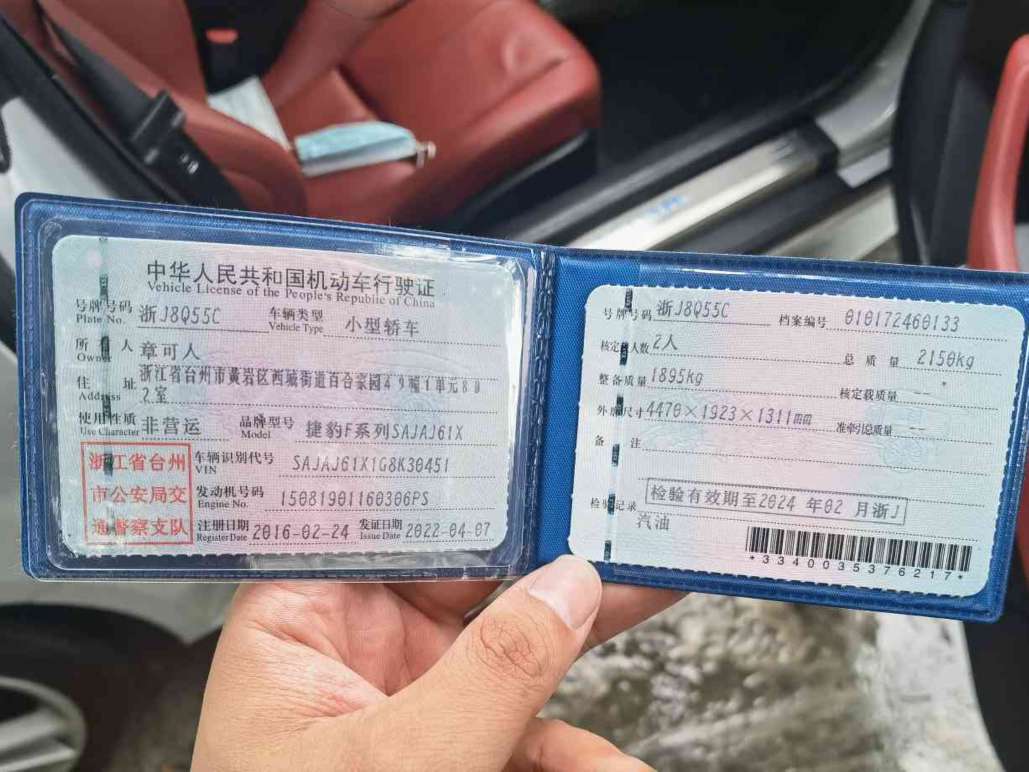 中华人民共和国机动车行驶证
Vehicle License of the People's Republic of China
号牌号码 浙J8Q55C 车辆类型 小型轿车
Plate No. Vehicle Type
所有人 章可人
Owner
住址 浙江省台州市黄岩区西城街道百合家园49幢1单元80
Address 2室
使用性质 非营运 品牌型号 捷豹F系列SAJAJ61X
Use Character Model
浙江省台州
市公安局交
通警察支队
车辆识别代号 SAJAJ61X1G8K30451
VIN
发动机号码 15081901160306PS
Engine No.
注册日期 2016-02-24 发证日期 2022-04-07
Register Date Issue Date
号牌号码 浙J8Q55C 档案编号 010172460133
核定人数 2人 总质量 2150kg
整备质量 1895kg 核定载质量 --
外廓尺寸 4470×1923×1311mm 准牵引总质量 --
备注
检验记录 检验有效期至2024年02月浙J
汽油
*3340035376217*